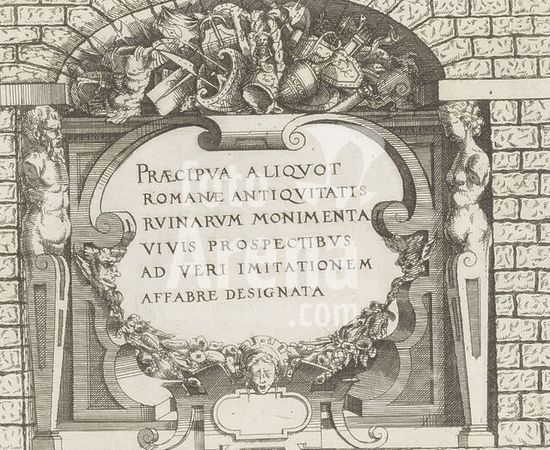 PRÆCIPVA ALIQVOT
ROMANÆ ANTIQVITATIS
RVINARVM MONIMENTA
VIVIS PROSPECTIBVS
AD VERI IMITATIONEM
AFFABRE DESIGNATA
.com